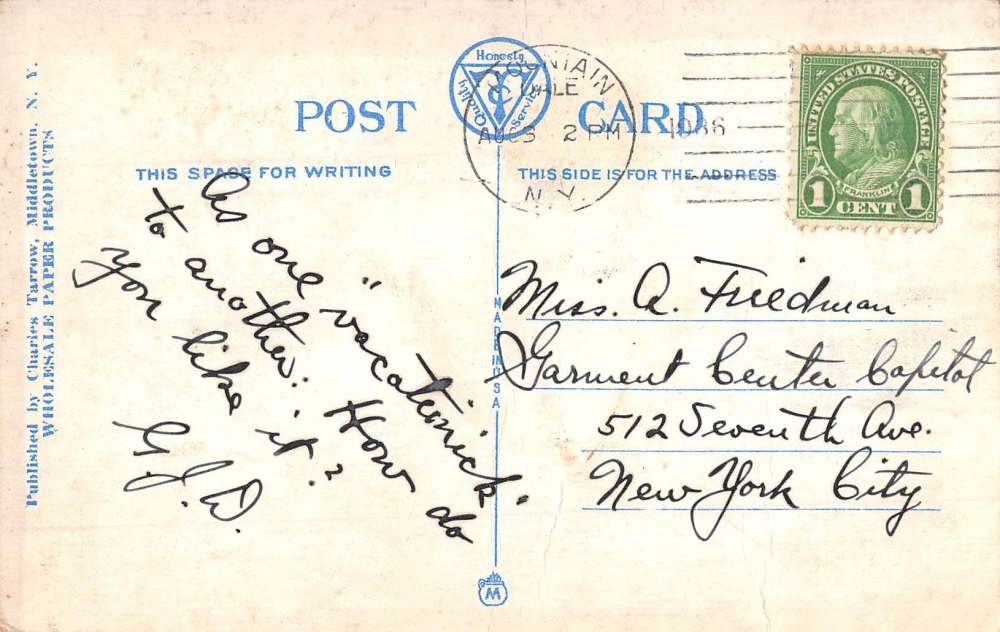 POST CARD
Honesty
Quality
Service
MOUNTAIN
DALE
AUG 3 2 PM
1936
N.Y.
UNITED STATES POSTAGE
FRANKLIN
1 CENT 1
THIS SPACE FOR WRITING
THIS SIDE IS FOR THE ADDRESS
As one "vacationick"
to another: How do
you like it?
G.J.D.
Miss. A. Friedman
Garment Center Capitol
512 Seventh Ave.
New York City
MADE IN USA
M
Published by Charles Tarrow, Middletown, N. Y.
WHOLESALE PAPER PRODUCTS